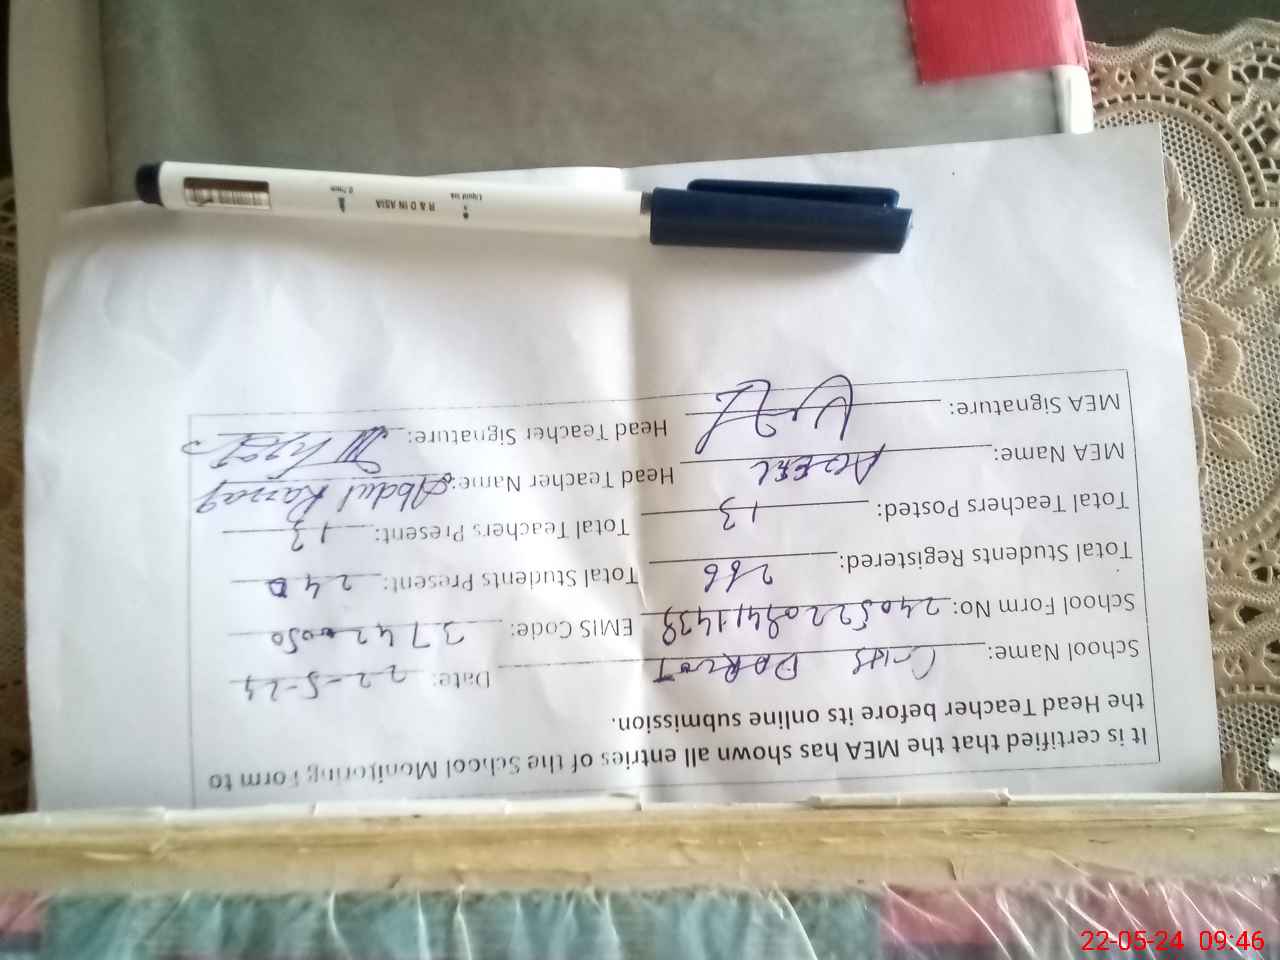 It is certified that the MEA has shown all entries of the School Monitoring Form to
the Head Teacher before its online submission.
School Name: Date: 22-5-24
School Form No: EMIS Code: 37420050
Total Students Registered: 266 Total Students Present: 240
Total Teachers Posted: 13 Total Teachers Present: 13
MEA Name: Head Teacher Name: Abdul Razzaq
MEA Signature: Head Teacher Signature:
Liquid Ink
R & D IN ASIA
0.7mm
22-05-24 09:46